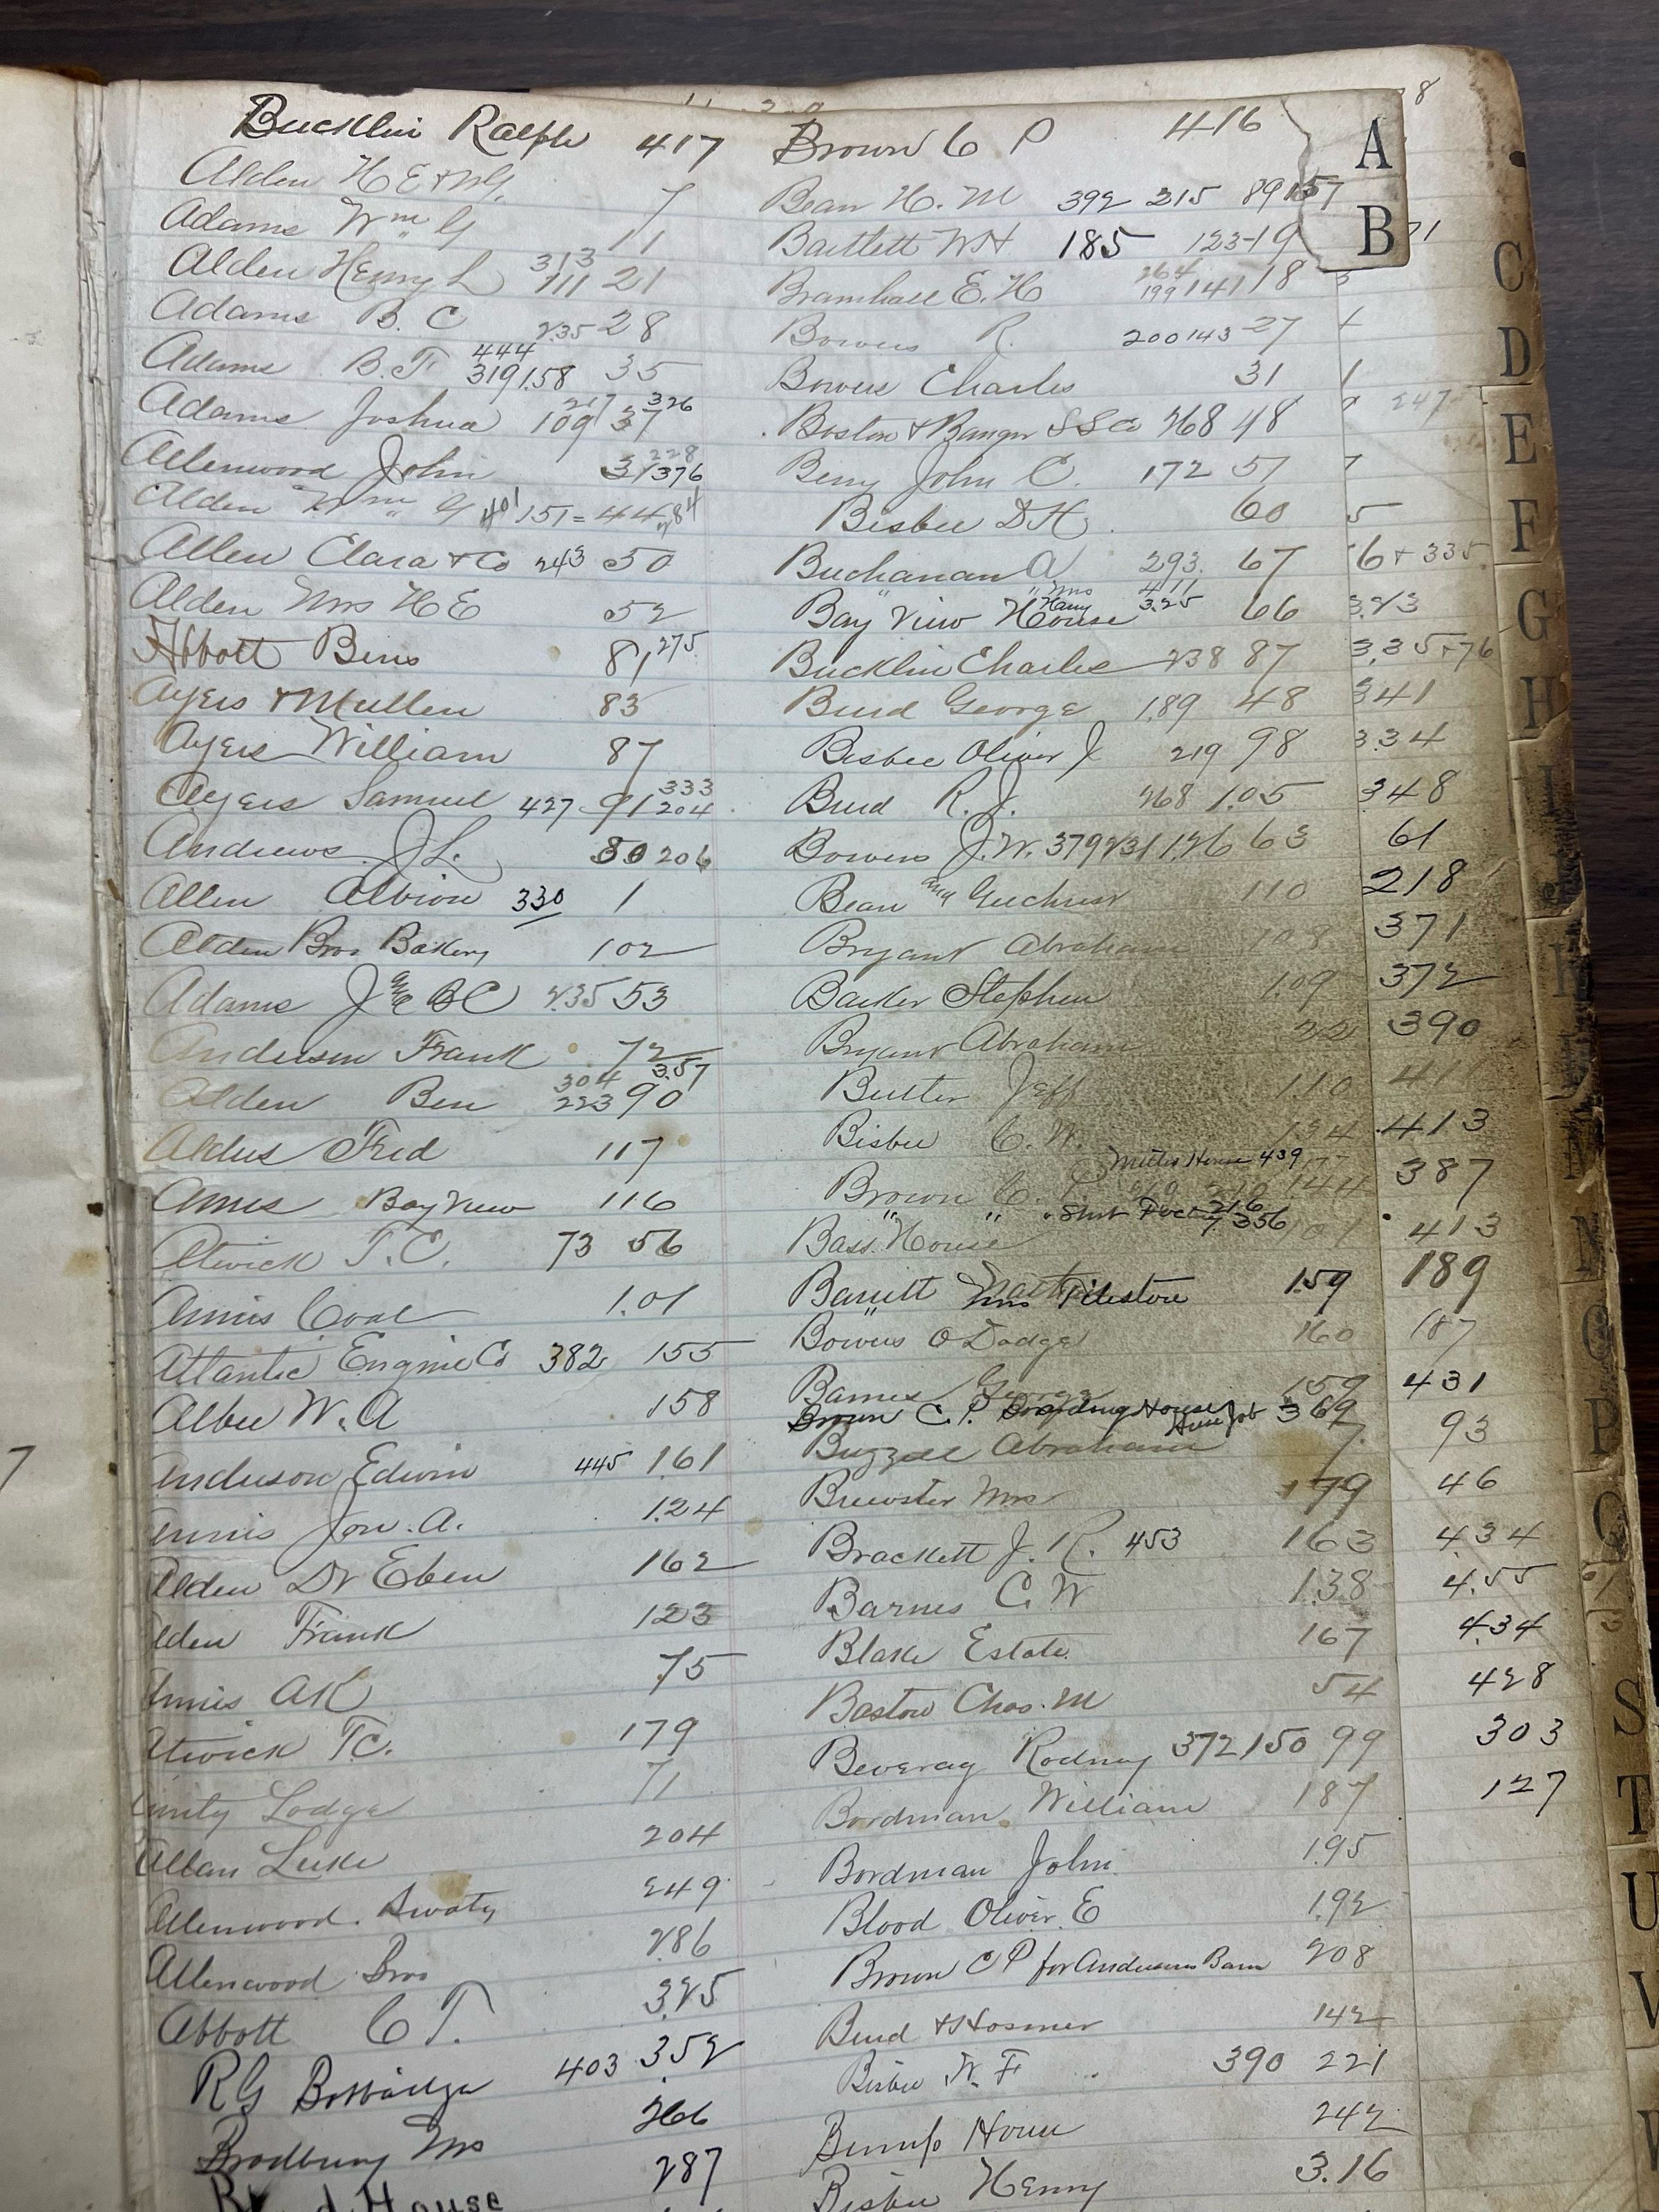 Bucklin Ralph 417
Alden H E & W G. 7
Adams Wm G 11
Alden Henry L 313 111 21
Adams B. C 235 28
Adams B. F 444 319 158 35
Adams Joshua 109 217 37 326
Allenwood John 31 228 376
Alden Wm G 401 151 = 44
Allen Clara & Co 243 50
Alden Mrs H E 52
Abbott Benj 81 275
Ayers & Mullen 83
Ayers William 87
Ayers Samuel 427 91 333 204
Andrews J L. 80 206
Allen Albion 330 1
Alden Bros Bakery 102
Adams J & B C 235 53
Anderson Frank 72 357
Alden Ben 304 223 90
Aldus Fred 117
Annis Bay View 116
Atwick T. C. 73 56
Annis Coal 1.01
Atlantic Engine Co 382 155
Albee W. A 158
Anderson Edwin 445 161
Annis Jon. A. 124
Alden Dr Eben 162
lden Frank 123
nnis A K 75
twick T C. 179
mity Lodge 71
Allan Luke 204
Allenwood 249
Allenwood Bros 286
Abbott C T. 325
R G 403 352
Bradbury Mrs 266
House 287
Brown C P 416
Bean H. M 392 215 89 157
Bartlett W H 185 123 19
Bramhall E. H 264 199 141 18
Bowers R. 200 143 27
Bowers Charles 31
Boston & Bangor S S Co 268 48
Berry John C. 172 57
Bisbee D H. 60
Buchanan A 293. 67
" " Mrs 411
Bay View House Harry 325 66
Bucklin Charles 238 87
Burd George 189 48
Bisbee Oliver J 219 98
Burd R. J. 268 105
Bowers J. W. 379 231 126 63
Bean and Guchrist 110
Bryant Abraham 108
Barker Stephen 109
Bryant Abraham 22
Butler Jeff 110
Bisbee C. W. 134
Mrs House 439
Brown C. P. 144
" " Shirt Factory 216 356
Bass House 101
Barrett
" Mrs Tileston 159
Bowers O Dodge 160
Barnes George 159
Brown C. P. Boarding House 369
Buzzell Abraham 7
Brewster Mrs 179
Brackett J. R. 453 163
Barnes C. W 138
Blake Estate 167
Bastow Chas. M 54
Beverag Rodney 372 150 99
Bordman William 187
Bordman John 195
Blood Oliver. E 192
Brown C P for Andersons Barn 208
Burd & Hosmer 142
Bisbee W. F 390 221
Bump House 242
Bisbee Henry 3.16
247
6 & 335
323
335 & 76
341
334
348
61
218
371
372
390
411
413
387
413
189
187
431
93
46
434
455
434
428
303
127
A
B
C
D
E
F
G
H
I
K
N
O
P
Q
S
T
U
V
7